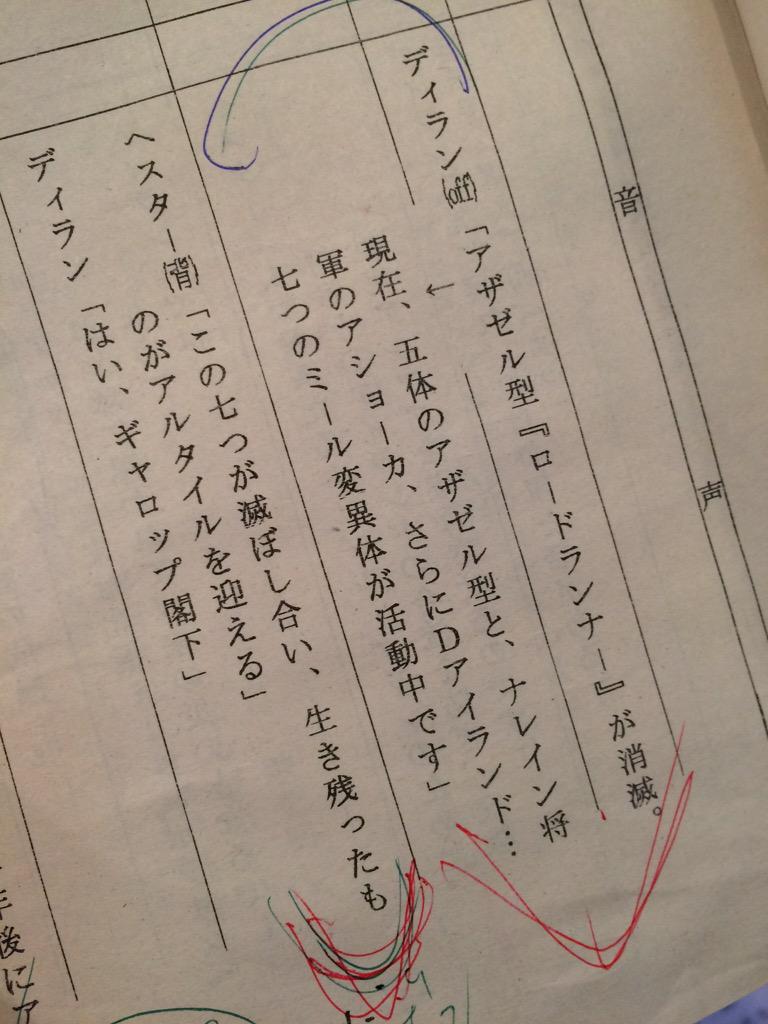 音声
ディラン(off)「アザゼル型『ロードランナー』が消滅。
←
現在、五体のアザゼル型と、ナレイン将
軍のアショーカ、さらにDアイランド…
七つのミール変異体が活動中です」
ヘスター(背)「この七つが滅ぼし合い、生き残ったも
のがアルタイルを迎える」
ディラン「はい、ギャロップ閣下」
年後にア